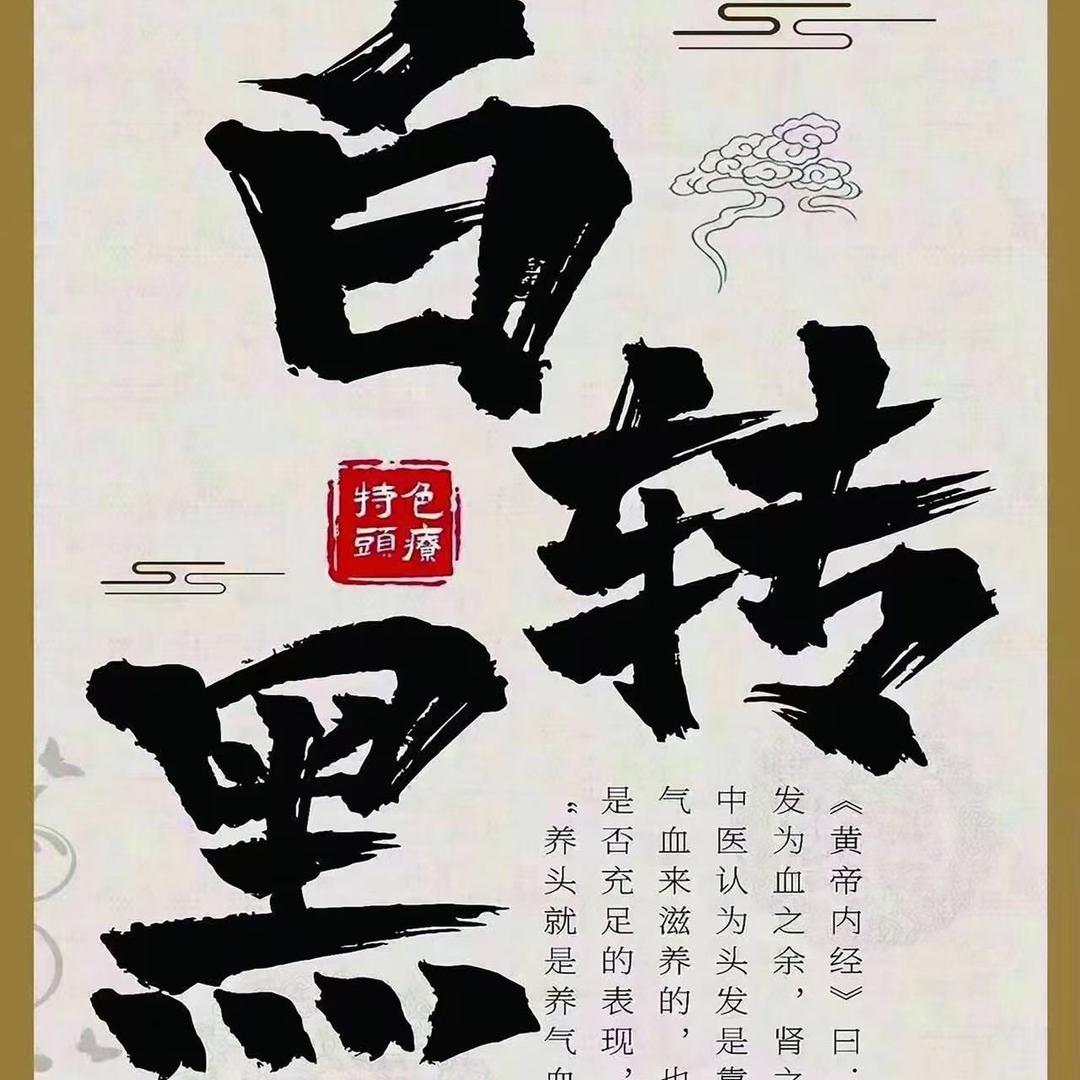 白转黑
特色
頭療
《黄帝内经》曰:
发为血之余，肾之
中医认为头发是靠
气血来滋养的，也
是否充足的表现，
“养头就是养气血